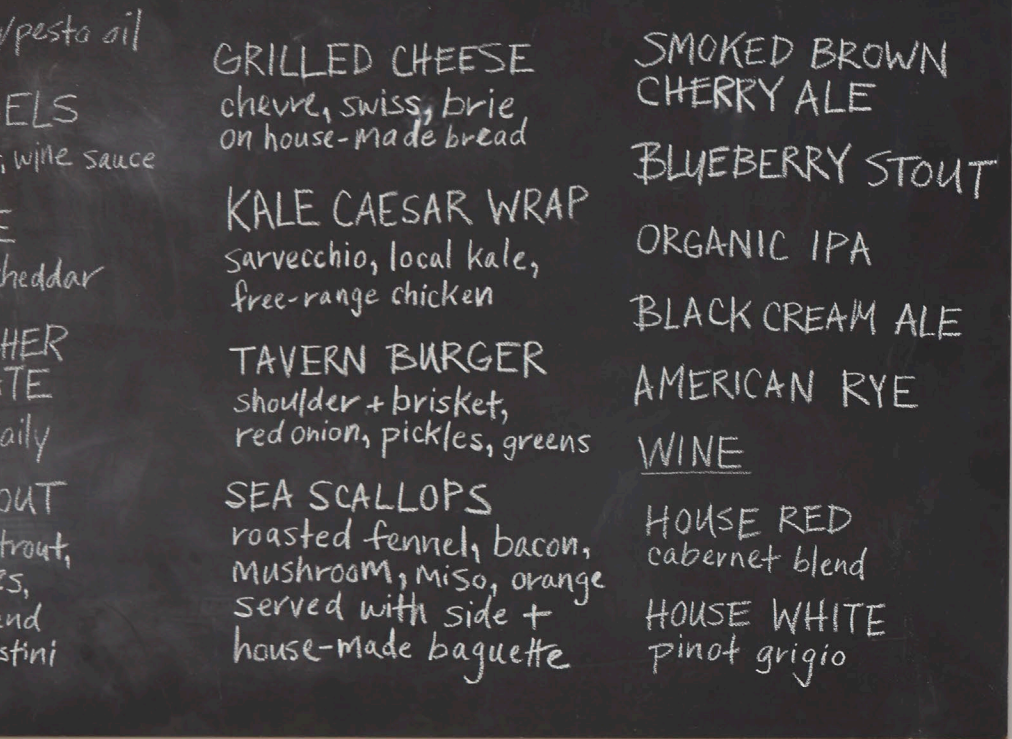 w/pesto oil
ELS
, wine sauce
E
cheddar
HER
TE
aily
OUT
trout,
es,
end
stini
GRILLED CHEESE
chevre, swiss, brie
on house-made bread
KALE CAESAR WRAP
sarvecchio, local kale,
free-range chicken
TAVERN BURGER
shoulder + brisket,
red onion, pickles, greens
SEA SCALLOPS
roasted fennel, bacon,
mushroom, miso, orange
served with side +
house-made baguette
SMOKED BROWN
CHERRY ALE
BLUEBERRY STOUT
ORGANIC IPA
BLACK CREAM ALE
AMERICAN RYE
WINE
HOUSE RED
cabernet blend
HOUSE WHITE
pinot grigio